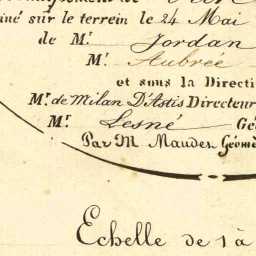 iné sur le terrein le 24 Mai
de M.r Jordan
M.r Aubrée
et sous la Directi
M.r de Milan D'Astis Directeur
M.r Lesné Gé
Par M Maudet Géomè
Echelle de 1 à